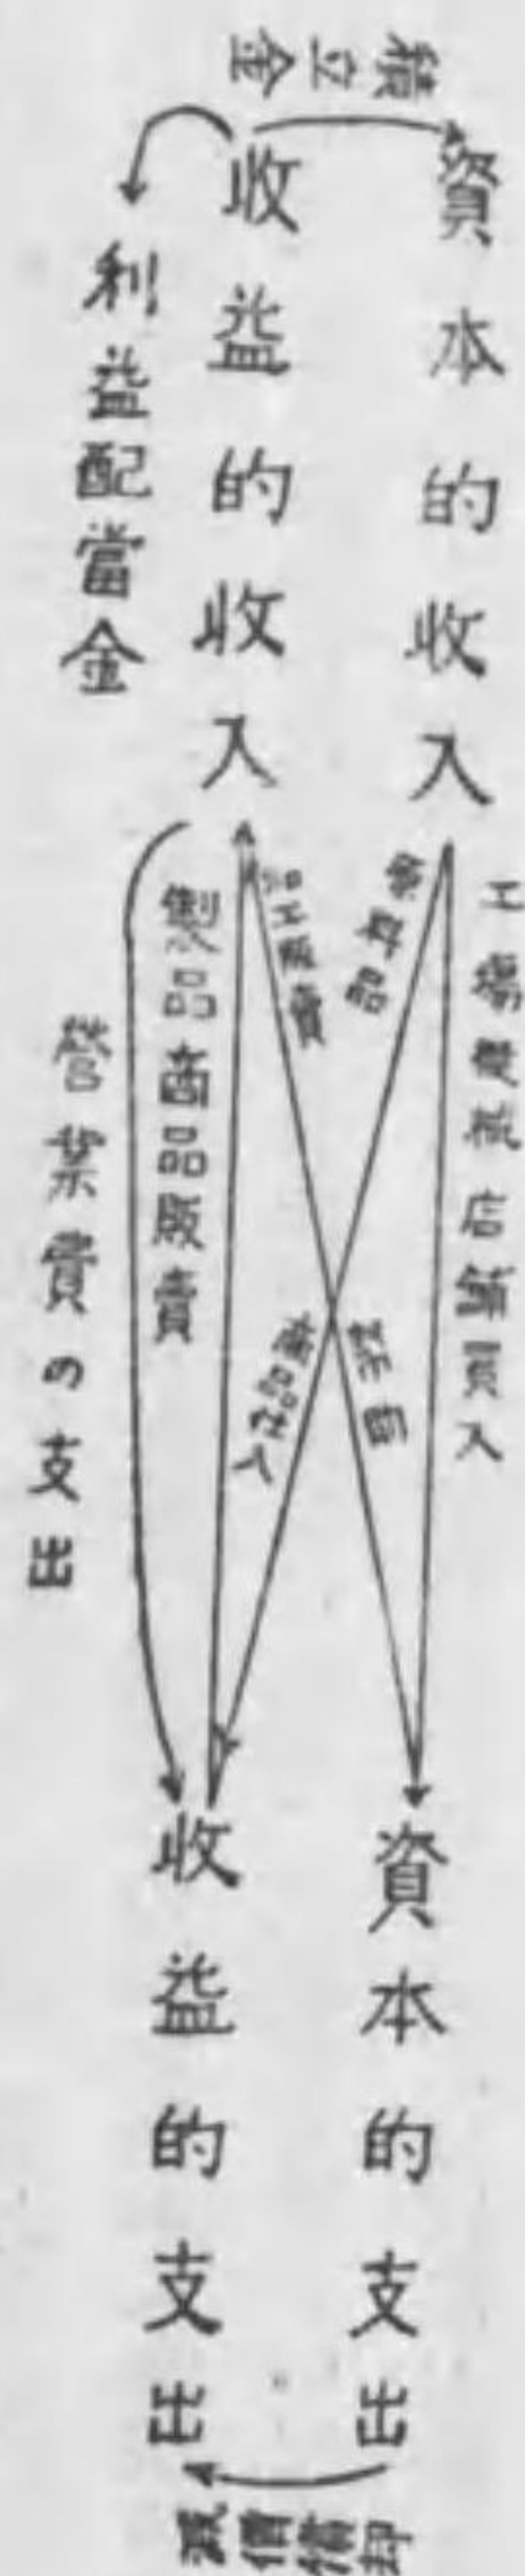 積立金
資本的收入
收益的收入
利益配當金
工場機械店舗買入
商品仕入
製品商品販賣
営業費の支出
資本的支出
收益的支出
減價償却